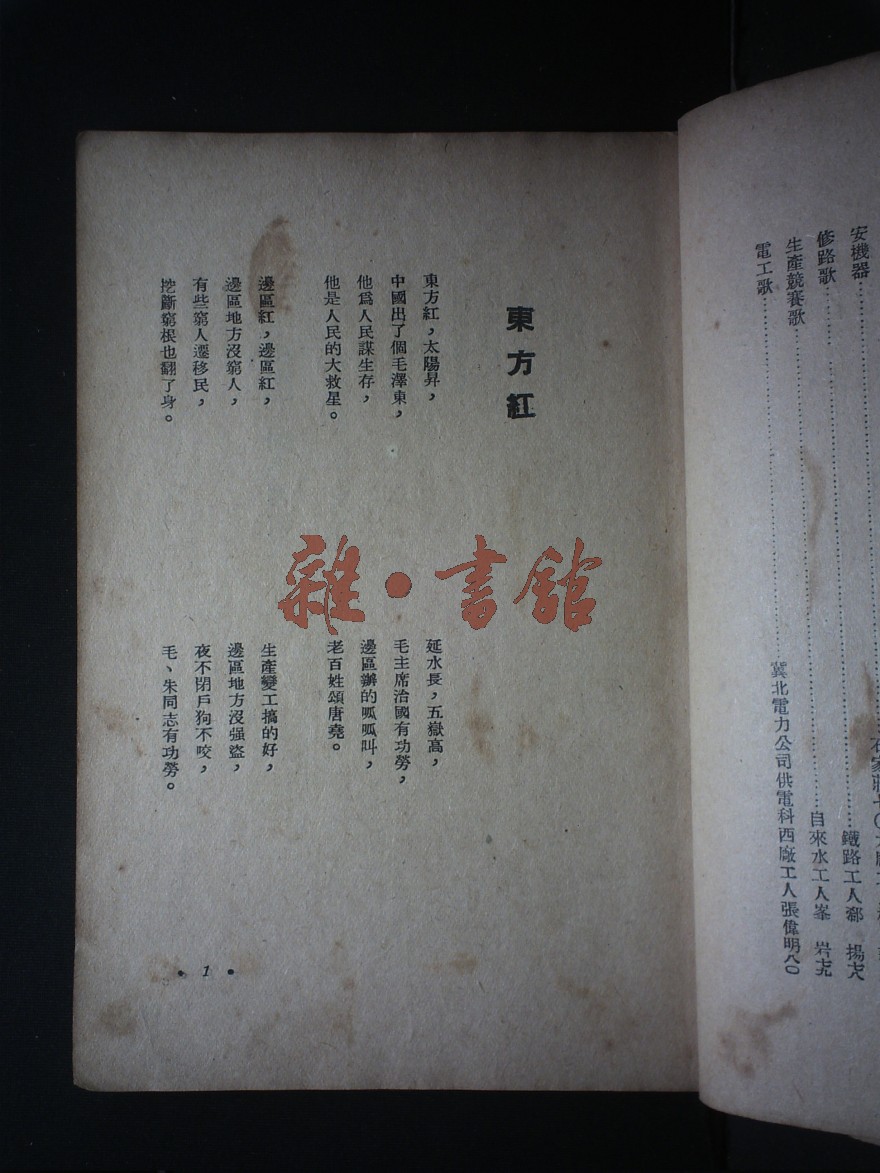 安機器
修路歌
鐵路工人鄒 揚
生產競賽歌
自來水工人峯 岩
電工歌
冀北電力公司供電科西廠工人張偉明八〇
東方紅
東方紅，太陽昇，
中國出了個毛澤東，
他爲人民謀生存，
他是人民的大救星。
邊區紅，邊區紅，
邊區地方沒窮人，
有些窮人遷移民，
挖斷窮根也翻了身。
延水長，五嶽高，
毛主席治國有功勞，
邊區辦的呱呱叫，
老百姓頌唐堯。
生產變工搞的好，
邊區地方沒强盜，
夜不閉戶狗不咬，
毛、朱同志有功勞。
• 1 •
雜•書館